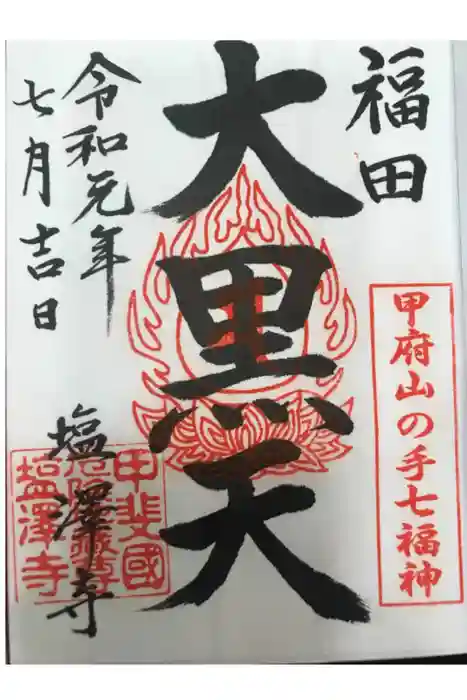 福田
甲府山の手七福神
大黒天
令和元年
七月吉日
塩澤寺
甲斐國
厄除地蔵尊
塩澤寺